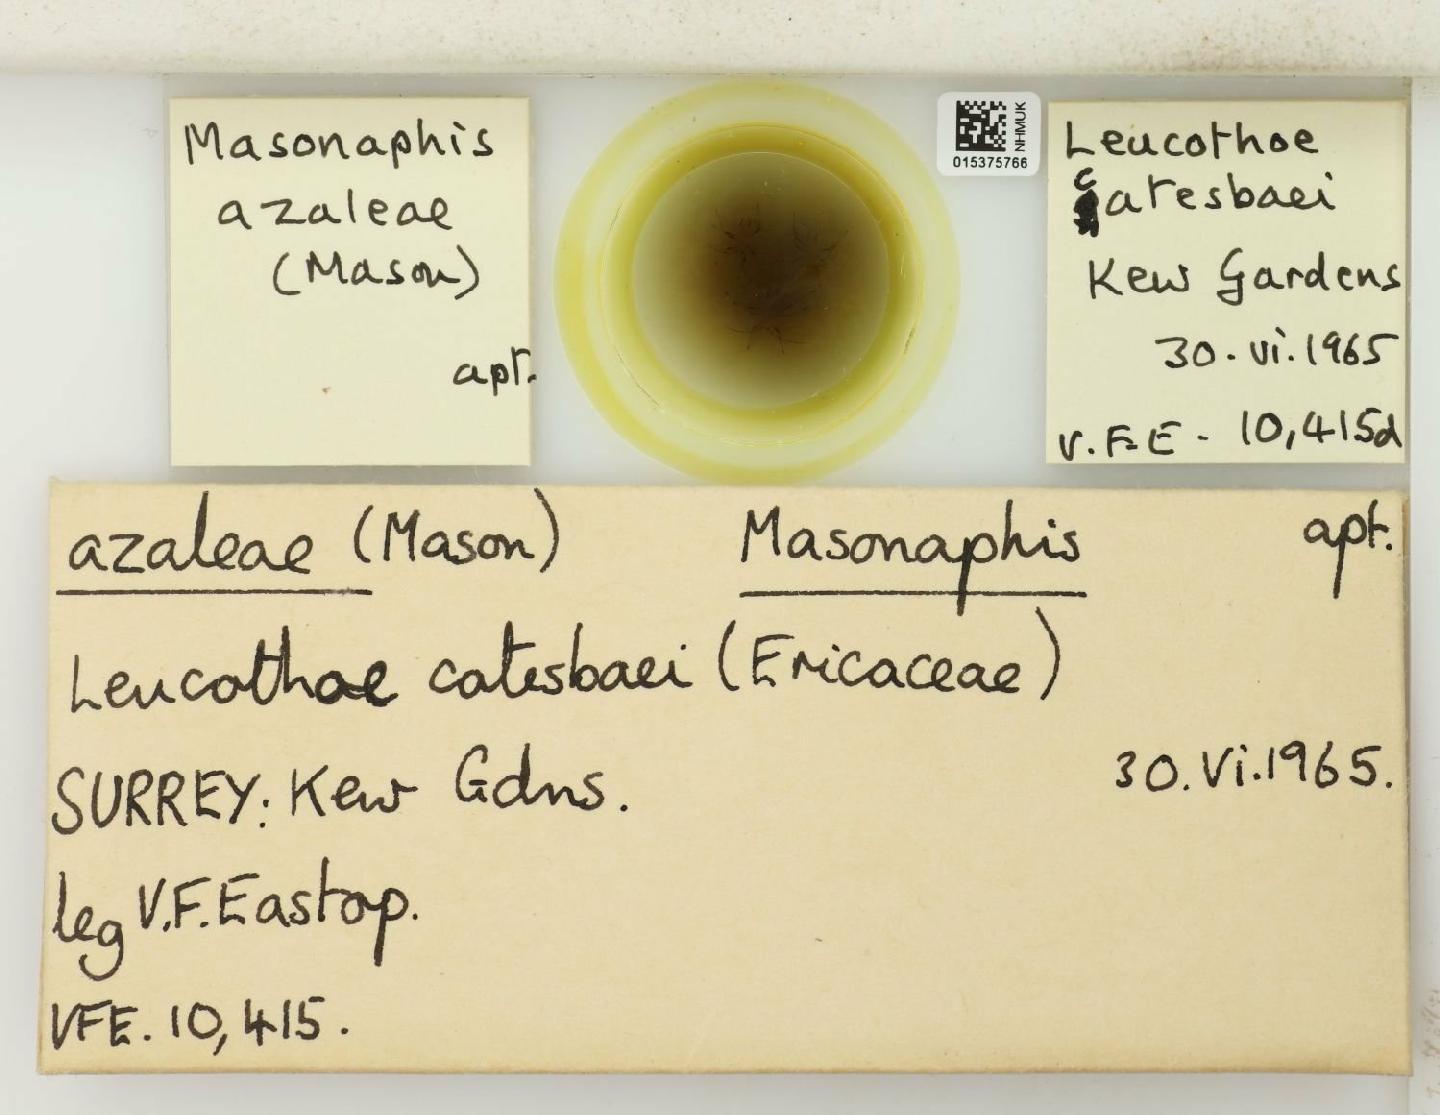 Masonaphis
azaleae
(Mason)
apt.
NHMUK
015375766
Leucothoe
catesbaei
Kew Gardens
30.vi.1965
V.F.E - 10,415d
azaleae (Mason) Masonaphis apt.
Leucothoe catesbaei (Ericaceae)
SURREY: Kew Gdns. 30.Vi.1965.
leg V.F.Eastop.
VFE. 10,415.